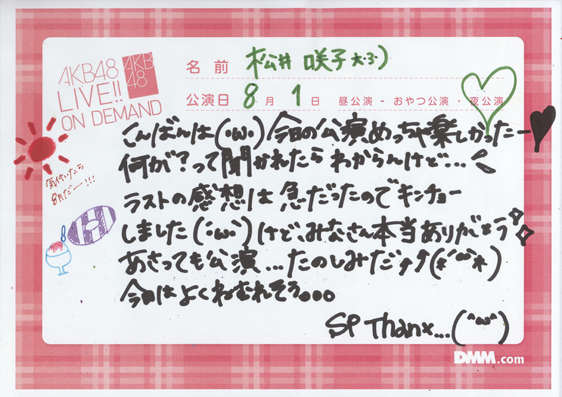 AKB48
LIVE!!
ON DEMAND
AKB
48
名前 松井 咲子
公演日 8月1日 昼公演 - おやつ公演 - 夜公演
こんばんは(・ω・)今日の公演めっちゃ楽しかったー
何が?って聞かれたら わからんけど...
ラストの感想は 急だったのでキンチョー
しました(・ω・)けど、みなさん本当ありがとう
あさっても公演...たのしみだ
今日はよくねむれそう。。。
SP Thanx...(^ω^)
気付いたら
8月だー!!!
DMM.com